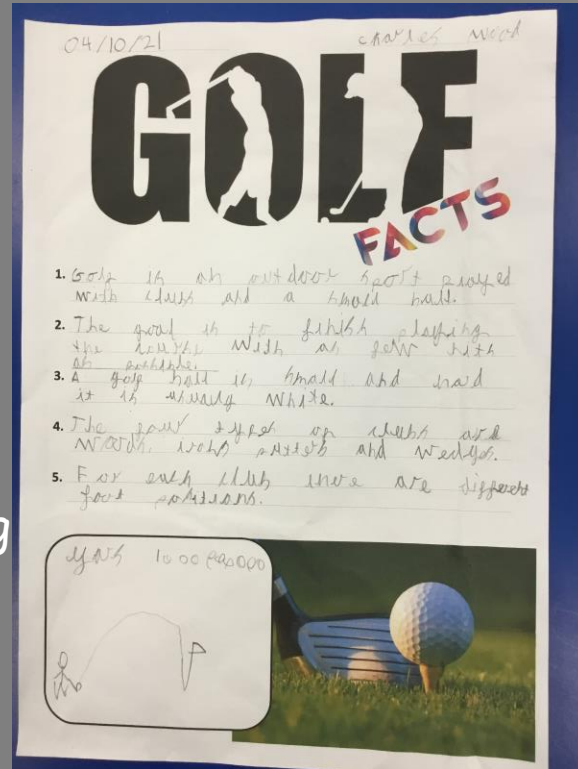 04/10/21 Charles Wood
GOLF
FACTS
1. Golf is an outdoor sport played
with clubs and a small ball.
2. The goal is to finish playing
the course with as few hits
as possible.
3. A golf ball is small and hard
it is usually white.
4. The four types of clubs are
woods, irons putters and wedges.
5. For each club there are different
foot positions.
g